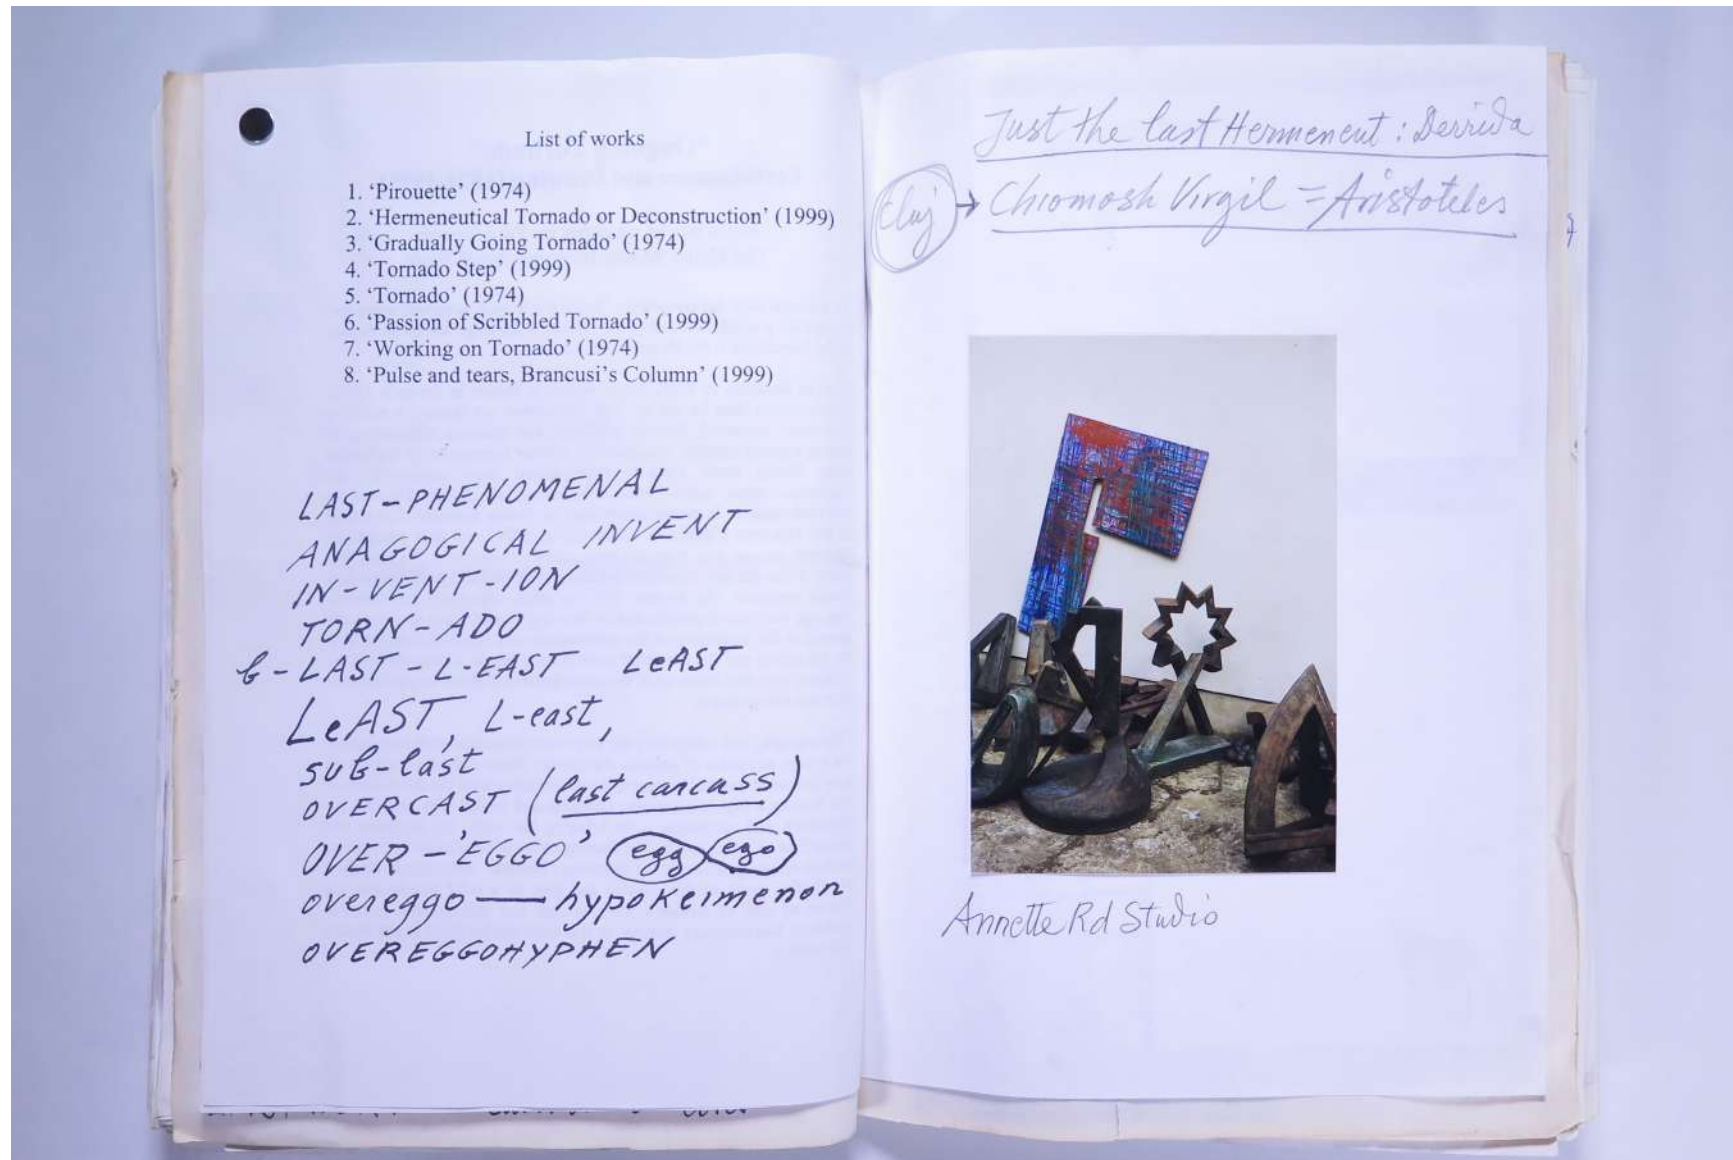 List of works
1. ‘Pirouette’ (1974)
2. ‘Hermeneutical Tornado or Deconstruction’ (1999)
3. ‘Gradually Going Tornado’ (1974)
4. ‘Tornado Step’ (1999)
5. ‘Tornado’ (1974)
6. ‘Passion of Scribbled Tornado’ (1999)
7. ‘Working on Tornado’ (1974)
8. ‘Pulse and tears, Brancusi’s Column’ (1999)
LAST-PHENOMENAL
ANAGOGICAL INVENT
IN-VENT-ION
TORN-ADO
b-LAST-L-EAST LeAST
LeAST, L-east,
sub-last
OVERCAST (last carcass)
OVER-'EGGO' egg ego
overeggo — hypokeimenon
OVEREGGOHYPHEN
Just the last Hermeneut: Derrida
Cluj → Chiomosh Virgil = Aristoteles
Annette Rd Studio